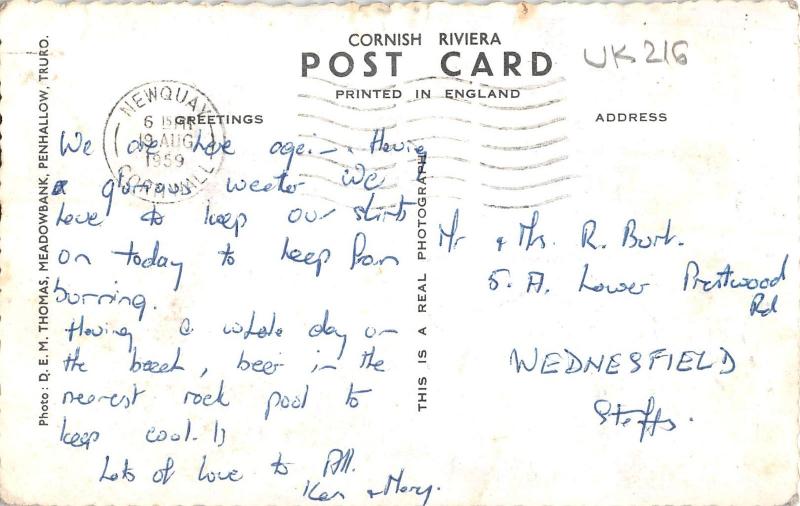 CORNISH RIVIERA
POST CARD
PRINTED IN ENGLAND
UK 216
GREETINGS
ADDRESS
NEWQUAY
6 15 PM
19 AUG
1959
CORNWALL
We are here again. Having
a gorgous weater We
have to keep our shirts
on today to keep from
burning.
Having a whole day on
the beach, beer in the
nearest rock pool to
keep cool. !)
Lots of love to All.
Ken & Mary.
Mr & Mrs. R. Burt.
5. A. Lower Prestwood
Rd
WEDNESFIELD
Staffs.
Photo: D. E. M. THOMAS, MEADOWBANK, PENHALLOW, TRURO.
THIS IS A REAL PHOTOGRAPH